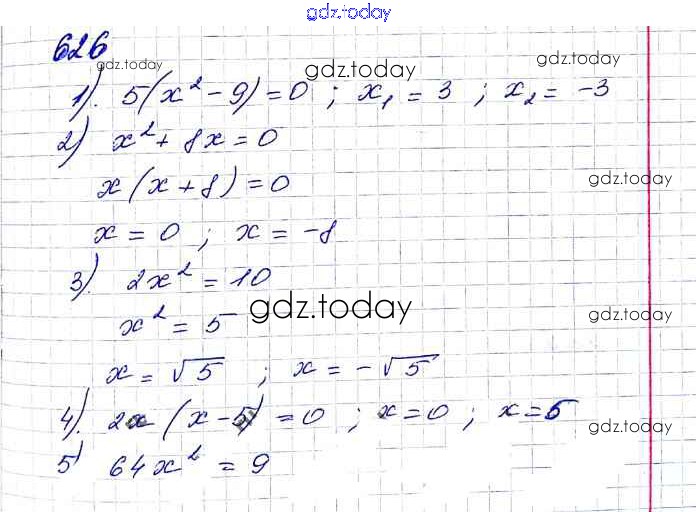 gdz.today
626
gdz.today
gdz.today
gdz.today
1). 5(x² - 9) = 0 ; x₁ = 3 ; x₂ = -3
2) x² + 8x = 0
x(x + 8) = 0
gdz.today
x = 0 ; x = -8
3). 2x² = 10
x² = 5
gdz.today
gdz.today
x = √5 ; x = -√5
4). 2x(x - 5) = 0 ; x = 0 ; x = 5
gdz.today
5) 64x² = 9